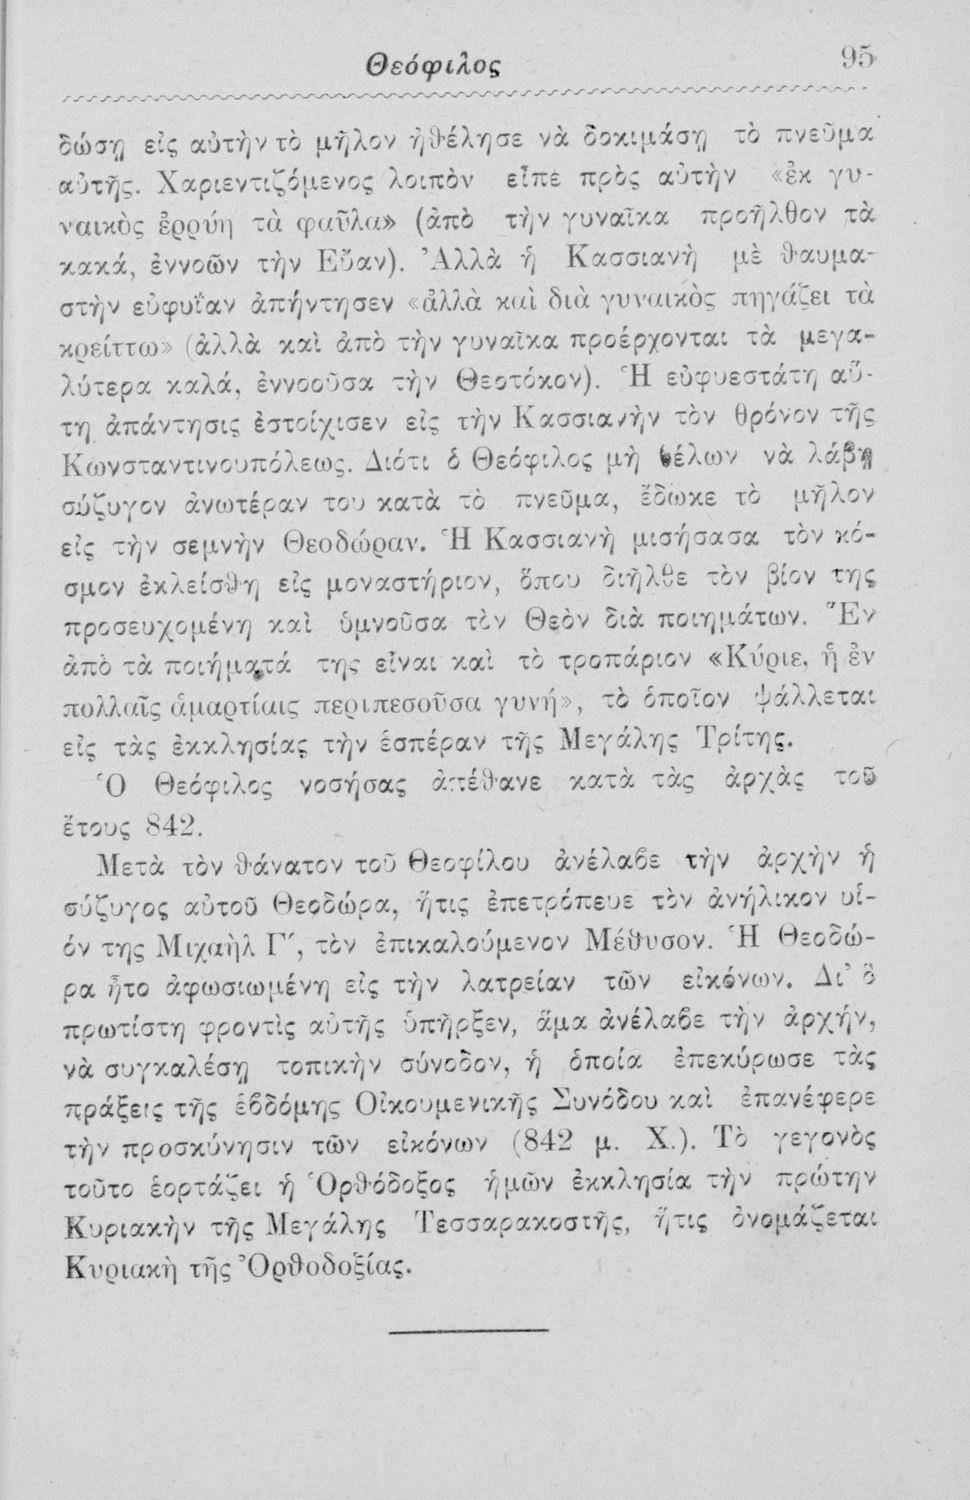 Θεόφιλος 95
δώσῃ εἰς αὐτὴν τὸ μῆλον ἠθέλησε νὰ δοκιμάσῃ τὸ πνεῦμα
αὐτῆς. Χαριεντιζόμενος λοιπὸν εἶπε πρὸς αὐτὴν «ἐκ γυ-
ναικὸς ἐρρύη τὰ φαῦλα» (ἀπὸ τὴν γυναῖκα προῆλθον τὰ
κακά, ἐννοῶν τὴν Εὔαν). Ἀλλὰ ἡ Κασσιανὴ μὲ θαυμα-
στὴν εὐφυΐαν ἀπήντησεν «ἀλλὰ καὶ διὰ γυναικὸς πηγάζει τὰ
κρείττω» (ἀλλὰ καὶ ἀπὸ τὴν γυναῖκα προέρχονται τὰ μεγα-
λύτερα καλά, ἐννοοῦσα τὴν Θεοτόκον). Ἡ εὐφυεστάτη αὕ-
τη ἀπάντησις ἐστοίχισεν εἰς τὴν Κασσιανὴν τὸν θρόνον τῆς
Κωνσταντινουπόλεως. Διότι ὁ Θεόφιλος μὴ θέλων νὰ λάβῃ
σύζυγον ἀνωτέραν του κατὰ τὸ πνεῦμα, ἔδωκε τὸ μῆλον
εἰς τὴν σεμνὴν Θεοδώραν. Ἡ Κασσιανὴ μισήσασα τὸν κό-
σμον ἐκλείσθη εἰς μοναστήριον, ὅπου διῆλθε τὸν βίον της
προσευχομένη καὶ ὑμνοῦσα τὸν Θεὸν διὰ ποιημάτων. Ἓν
ἀπὸ τὰ ποιήματά της εἶναι καὶ τὸ τροπάριον «Κύριε, ἡ ἐν
πολλαῖς ἁμαρτίαις περιπεσοῦσα γυνή», τὸ ὁποῖον ψάλλεται
εἰς τὰς ἐκκλησίας τὴν ἑσπέραν τῆς Μεγάλης Τρίτης.
Ὁ Θεόφιλος νοσήσας ἀπέθανε κατὰ τὰς ἀρχὰς τοῦ
ἔτους 842.
Μετὰ τὸν θάνατον τοῦ Θεοφίλου ἀνέλαβε τὴν ἀρχὴν ἡ
σύζυγος αὐτοῦ Θεοδώρα, ἥτις ἐπετρόπευε τὸν ἀνήλικον υἱ-
όν της Μιχαὴλ Γ΄, τὸν ἐπικαλούμενον Μέθυσον. Ἡ Θεοδώ-
ρα ἦτο ἀφωσιωμένη εἰς τὴν λατρείαν τῶν εἰκόνων. Δι' ὃ
πρωτίστη φροντὶς αὐτῆς ὑπῆρξεν, ἅμα ἀνέλαβε τὴν ἀρχήν,
νὰ συγκαλέσῃ τοπικὴν σύνοδον, ἡ ὁποία ἐπεκύρωσε τὰς
πράξεις τῆς ἑβδόμης Οἰκουμενικῆς Συνόδου καὶ ἐπανέφερε
τὴν προσκύνησιν τῶν εἰκόνων (842 μ. Χ.). Τὸ γεγονὸς
τοῦτο ἑορτάζει ἡ Ὀρθόδοξος ἡμῶν ἐκκλησία τὴν πρώτην
Κυριακὴν τῆς Μεγάλης Τεσσαρακοστῆς, ἥτις ὀνομάζεται
Κυριακὴ τῆς Ὀρθοδοξίας.